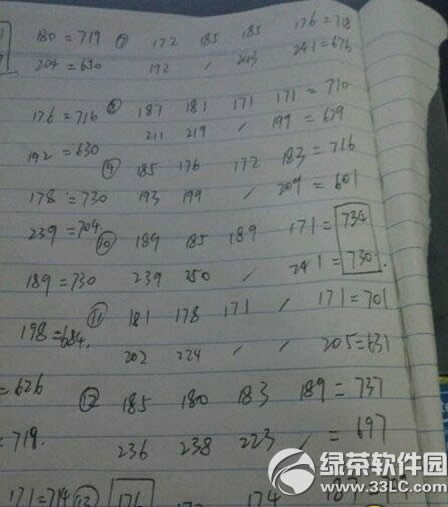 180=719 ⑦ 172 185 185 176=718
204=690 192 / 203 241=676
176=716 ⑧ 187 181 171 171=710
211 219 / 199=629
192=630
⑨ 185 176 172 183=716
178=730 193 199 / 209=601
239=704
⑩ 189 185 189 171=734
189=730 239 250 / 241=730
⑪ 181 178 171 / 171=701
198=684
202 224 / / 205=631
=626 ⑫ 185 180 183 189=737
=719 236 238 223 / =697
171=714 ⑬ 176 174
绿茶软件园
www.33LC.com